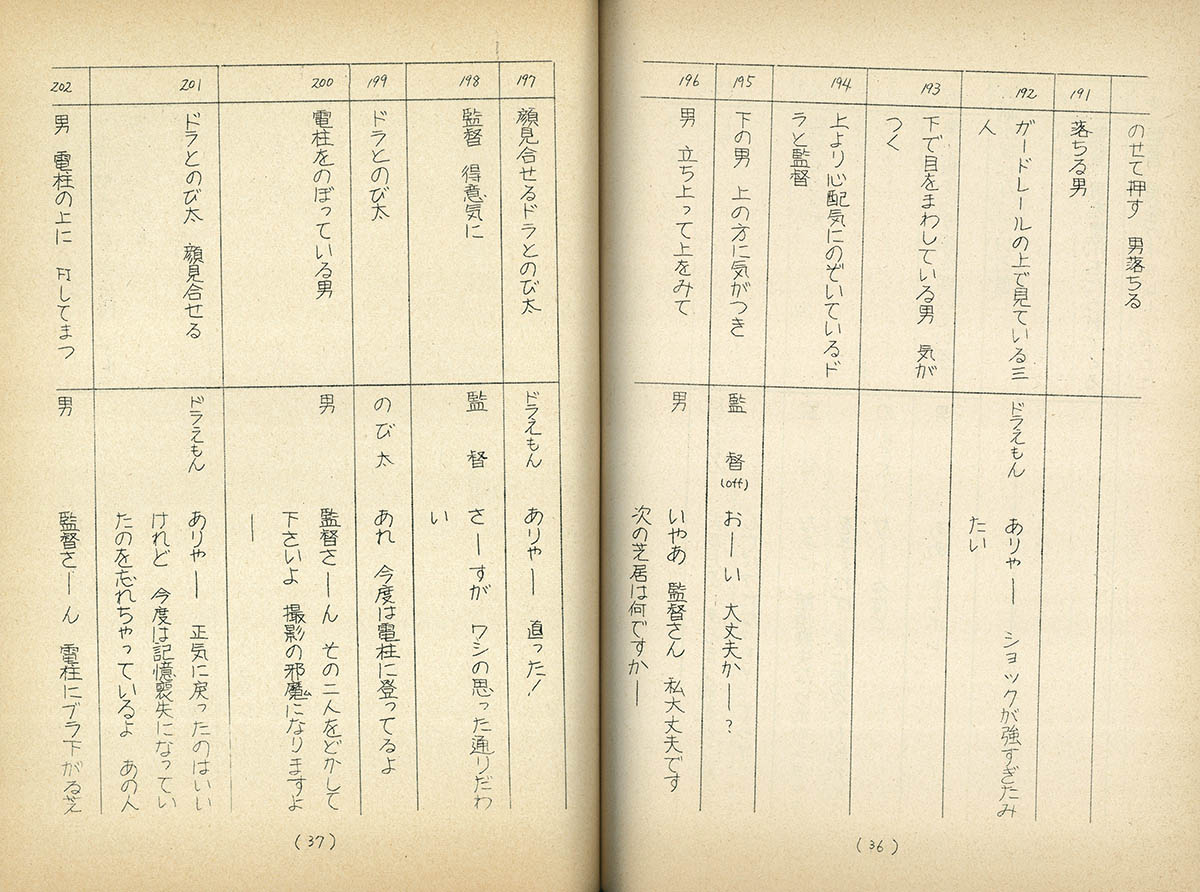 のせて押す　男落ちる
191
落ちる男
192
ガードレールの上で見ている三
人
ドラえもん
ありゃー　ショックが強すぎたみ
たい
193
下で目をまわしている男　気が
つく
194
上より心配気にのぞいているド
ラと監督
195
下の男　上の方に気がつき
監　督
(off)
おーい　大丈夫かー？
196
男　立ち上って上をみて
男
いやあ　監督さん　私大丈夫です
次の芝居は何ですかー
(36)
197
顔見合せるドラとのび太
ドラえもん
ありゃー　直った！
198
監督　得意気に
監　督
さーすが　ワシの思った通りだわ
い
199
ドラとのび太
のび太
あれ　今度は電柱に登ってるよ
200
電柱をのぼっている男
男
監督さーん　その二人をどかして
下さいよ　撮影の邪魔になりますよ
ー
201
ドラとのび太　顔見合せる
ドラえもん
ありゃー　正気に戻ったのはいい
けれど　今度は記憶喪失になってい
たのを忘れちゃっているよ　あの人
202
男　電柱の上に　FIしてまつ
男
監督さーん　電柱にブラ下がる芝
(37)